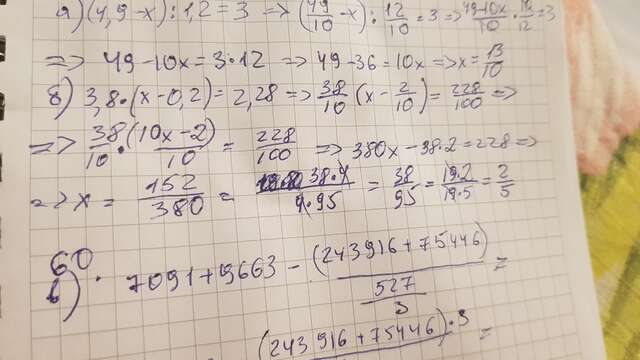 а) (4,9-x):1,2=3 => (49/10 -x): 12/10 =3 => 49-10x/10 · 10/12 =3
=> 49-10x=3·12 => 49-36=10x => x= 13/10
б) 3,8·(x-0,2)=2,28 => 38/10 (x- 2/10)= 228/100 =>
=> 38/10 · (10x-2)/10 = 228/100 => 380x-38·2=228 =>
=> x= 152/380 = 38·4/4·95 = 38/95 = 19·2/19·5 = 2/5
60
в) · 7091+9663 - (243916+75446)/ 527/3 =
(243916+75446)·3 =